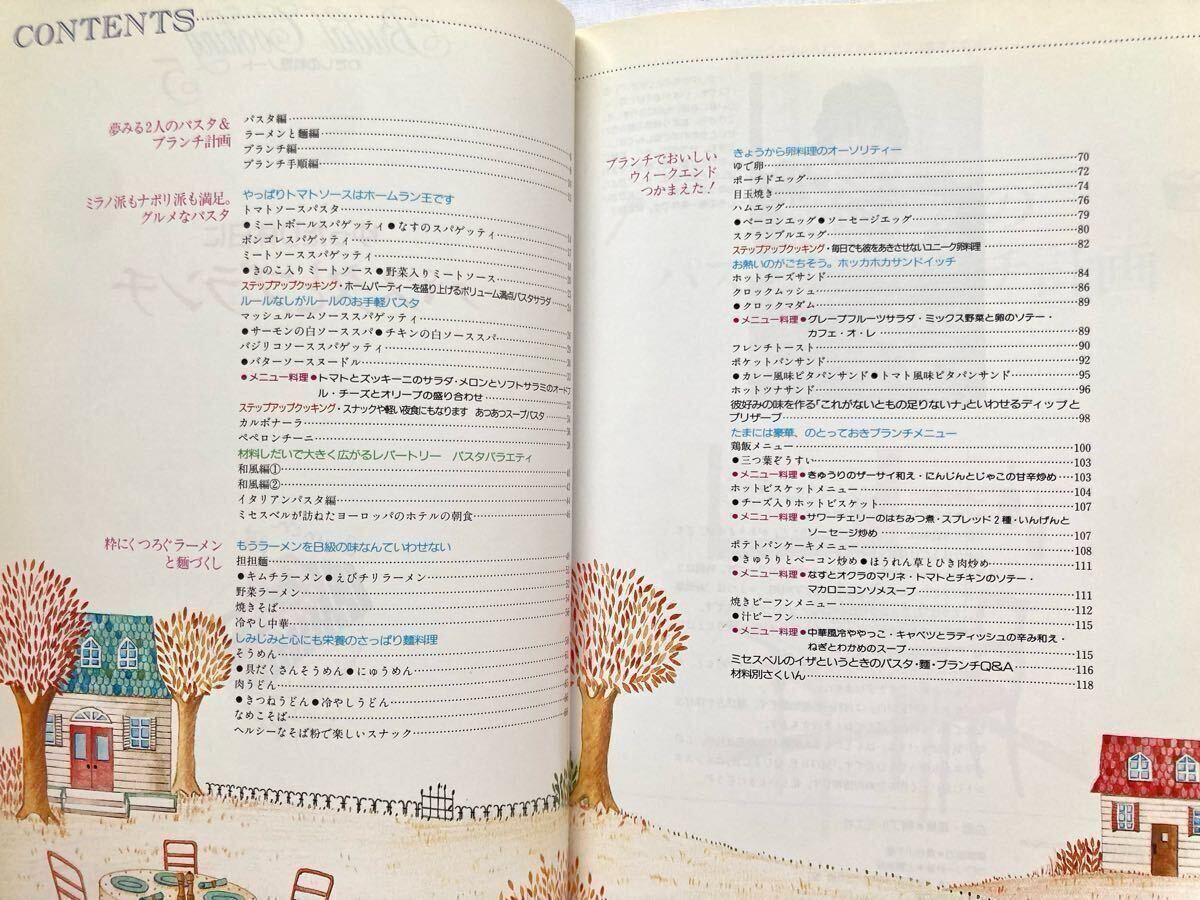 CONTENTS
夢みる2人のパスタ&
ブランチ計画
パスタ編
ラーメンと麺編
ブランチ編
ブランチ手順編
ミラノ派もナポリ派も満足。
グルメなパスタ
やっぱりトマトソースはホームラン王です
トマトソースパスタ
●ミートボールスパゲッティ●なすのスパゲッティ
ボンゴレスパゲッティ
ミートソーススパゲッティ
●きのこ入りミートソース●野菜入りミートソース
ステップアップクッキング・ホームパーティーを盛り上げるボリューム満点パスタサラダ
ルールなしがルールのお手軽パスタ
マッシュルームソーススパゲッティ
●サーモンの白ソーススパ●チキンの白ソーススパ
バジリコソーススパゲッティ
●バターソースヌードル
●メニュー料理●トマトとズッキーニのサラダ・メロンとソフトサラミのオードブ
ル・チーズとオリーブの盛り合わせ
ステップアップクッキング・スナックや軽い夜食にもなります あつあつスープパスタ
カルボナーラ
ペペロンチーニ
材料しだいで大きく広がるレパートリー パスタバラエティ
和風編①
和風編②
イタリアンパスタ編
ミセスベルが訪ねたヨーロッパのホテルの朝食
粋にくつろぐラーメン
と麺づくし
もうラーメンをB級の味なんていわせない
担担麺
●キムチラーメン●えびチリラーメン
野菜ラーメン
焼きそば
冷やし中華
しみじみと心にも栄養のさっぱり麺料理
そうめん
●具だくさんそうめん●にゅうめん
肉うどん
●きつねうどん●冷やしうどん
なめこそば
ヘルシーなそば粉で楽しいスナック
ブランチでおいしい
ウィークエンド
つかまえた!
きょうから卵料理のオーソリティー
ゆで卵 70
ポーチドエッグ 72
目玉焼き 74
ハムエッグ 76
●ベーコンエッグ●ソーセージエッグ 79
スクランブルエッグ 80
ステップアップクッキング・毎日でも彼をあきさせないユニーク卵料理 82
お熱いのがごちそう。ホッカホカサンドイッチ
ホットチーズサンド 84
クロックムッシュ 86
●クロックマダム 89
●メニュー料理●グレープフルーツサラダ・ミックス野菜と卵のソテー・
カフェ・オ・レ 89
フレンチトースト 90
ポケットパンサンド 92
●カレー風味ピタパンサンド●トマト風味ピタパンサンド 95
ホットツナサンド 96
彼好みの味を作る「これがないともの足りないナ」といわせるディップと
プリザーブ 98
たまには豪華、のとっておきブランチメニュー
鶏飯メニュー 100
●三つ葉ぞうすい 103
●メニュー料理●きゅうりのザーサイ和え・にんじんとじゃこの甘辛炒め 103
ホットビスケットメニュー 104
●チーズ入りホットビスケット 107
●メニュー料理●サワーチェリーのはちみつ煮・スプレッド2種・いんげんと
ソーセージ炒め 107
ポテトパンケーキメニュー 108
●きゅうりとベーコン炒め●ほうれん草とひき肉炒め 111
●メニュー料理●なすとオクラのマリネ・トマトとチキンのソテー・
マカロニコンソメスープ 111
焼きビーフンメニュー 112
●汁ビーフン 115
●メニュー料理●中華風冷ややっこ・キャベツとラディッシュの辛み和え・
ねぎとわかめのスープ 115
ミセスベルのイザというときのパスタ・麺・ブランチQ&A 116
材料別さくいん 118